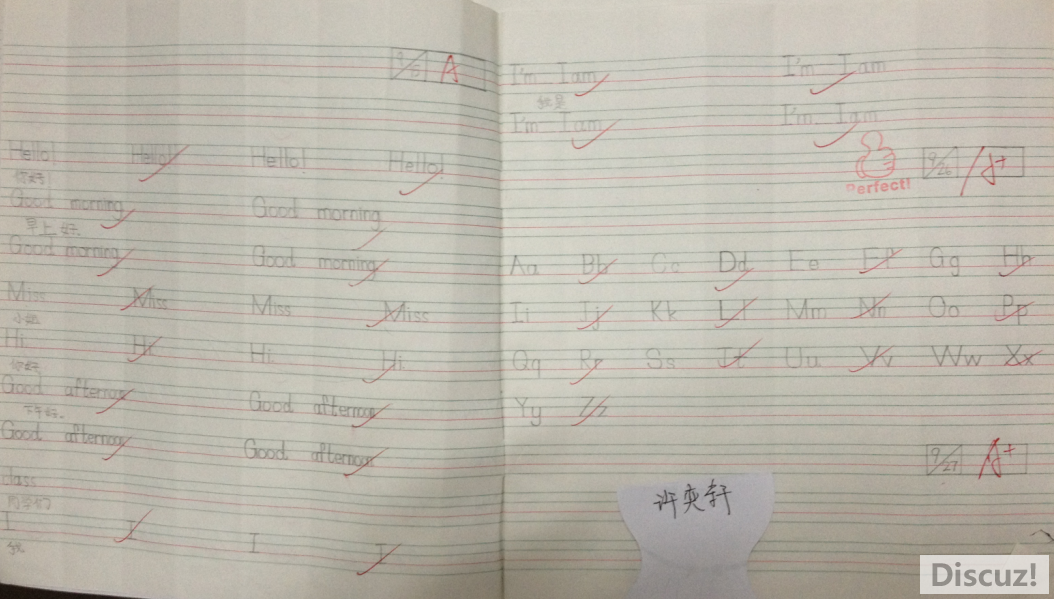 9/6 A
Hello! Hello! Hello! Hello!
你好
Good morning Good morning
早上好.
Good morning Good morning
Miss Miss Miss Miss
小姐
Hi Hi Hi Hi
你好
Good afternoon Good afternoon
下午好.
Good afternoon Good afternoon
class
同学们
I I I I
我
I'm I am I'm I am
我是
I'm I am I'm I am
Perfect!
9/26 A+
Aa Bb Cc Dd Ee Ff Gg Hh
Ii Jj Kk Ll Mm Nn Oo Pp
Qq Rr Ss Tt Uu Vv Ww Xx
Yy Zz
9/27 A+
许奕轩
Discuz!